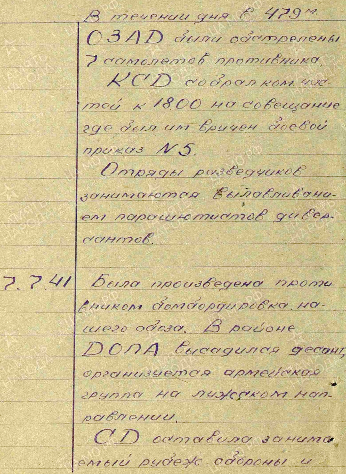 В течении дня в 479м
ОЗАД были обстрелены
7 самолетов противника.
КСД собрал ком. час
тей к 1800 на совещание
где был им вручен боевой
приказ N 5.
Отряды разведчиков
занимаются вылавливани-
ем парашютистов дивер-
сантов.
7.7.41 Была произведена проти
вником бомбардировка на-
шего обоза. В районе
ДОПА высадился десант,
организуется армейская
группа на лужском нап-
равлении.
СД оставила занима
емый рубеж обороны и